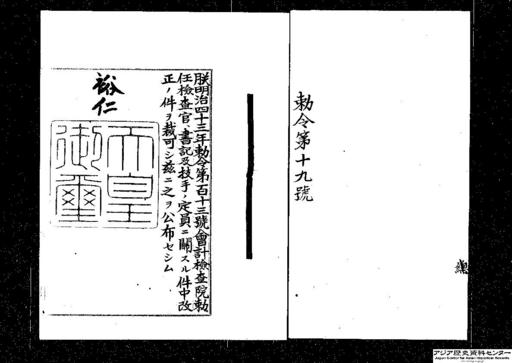 勅令第十九號
朕明治四十三年勅令第百十三號會計檢查院勅
任檢查官、書記及技手ノ定員ニ關スル件中改
正ノ件ヲ裁可シ玆ニ之ヲ公布セシム
裕仁
天皇
御璽
アジア歴史資料センター
Japan Center for Asian Historical Records